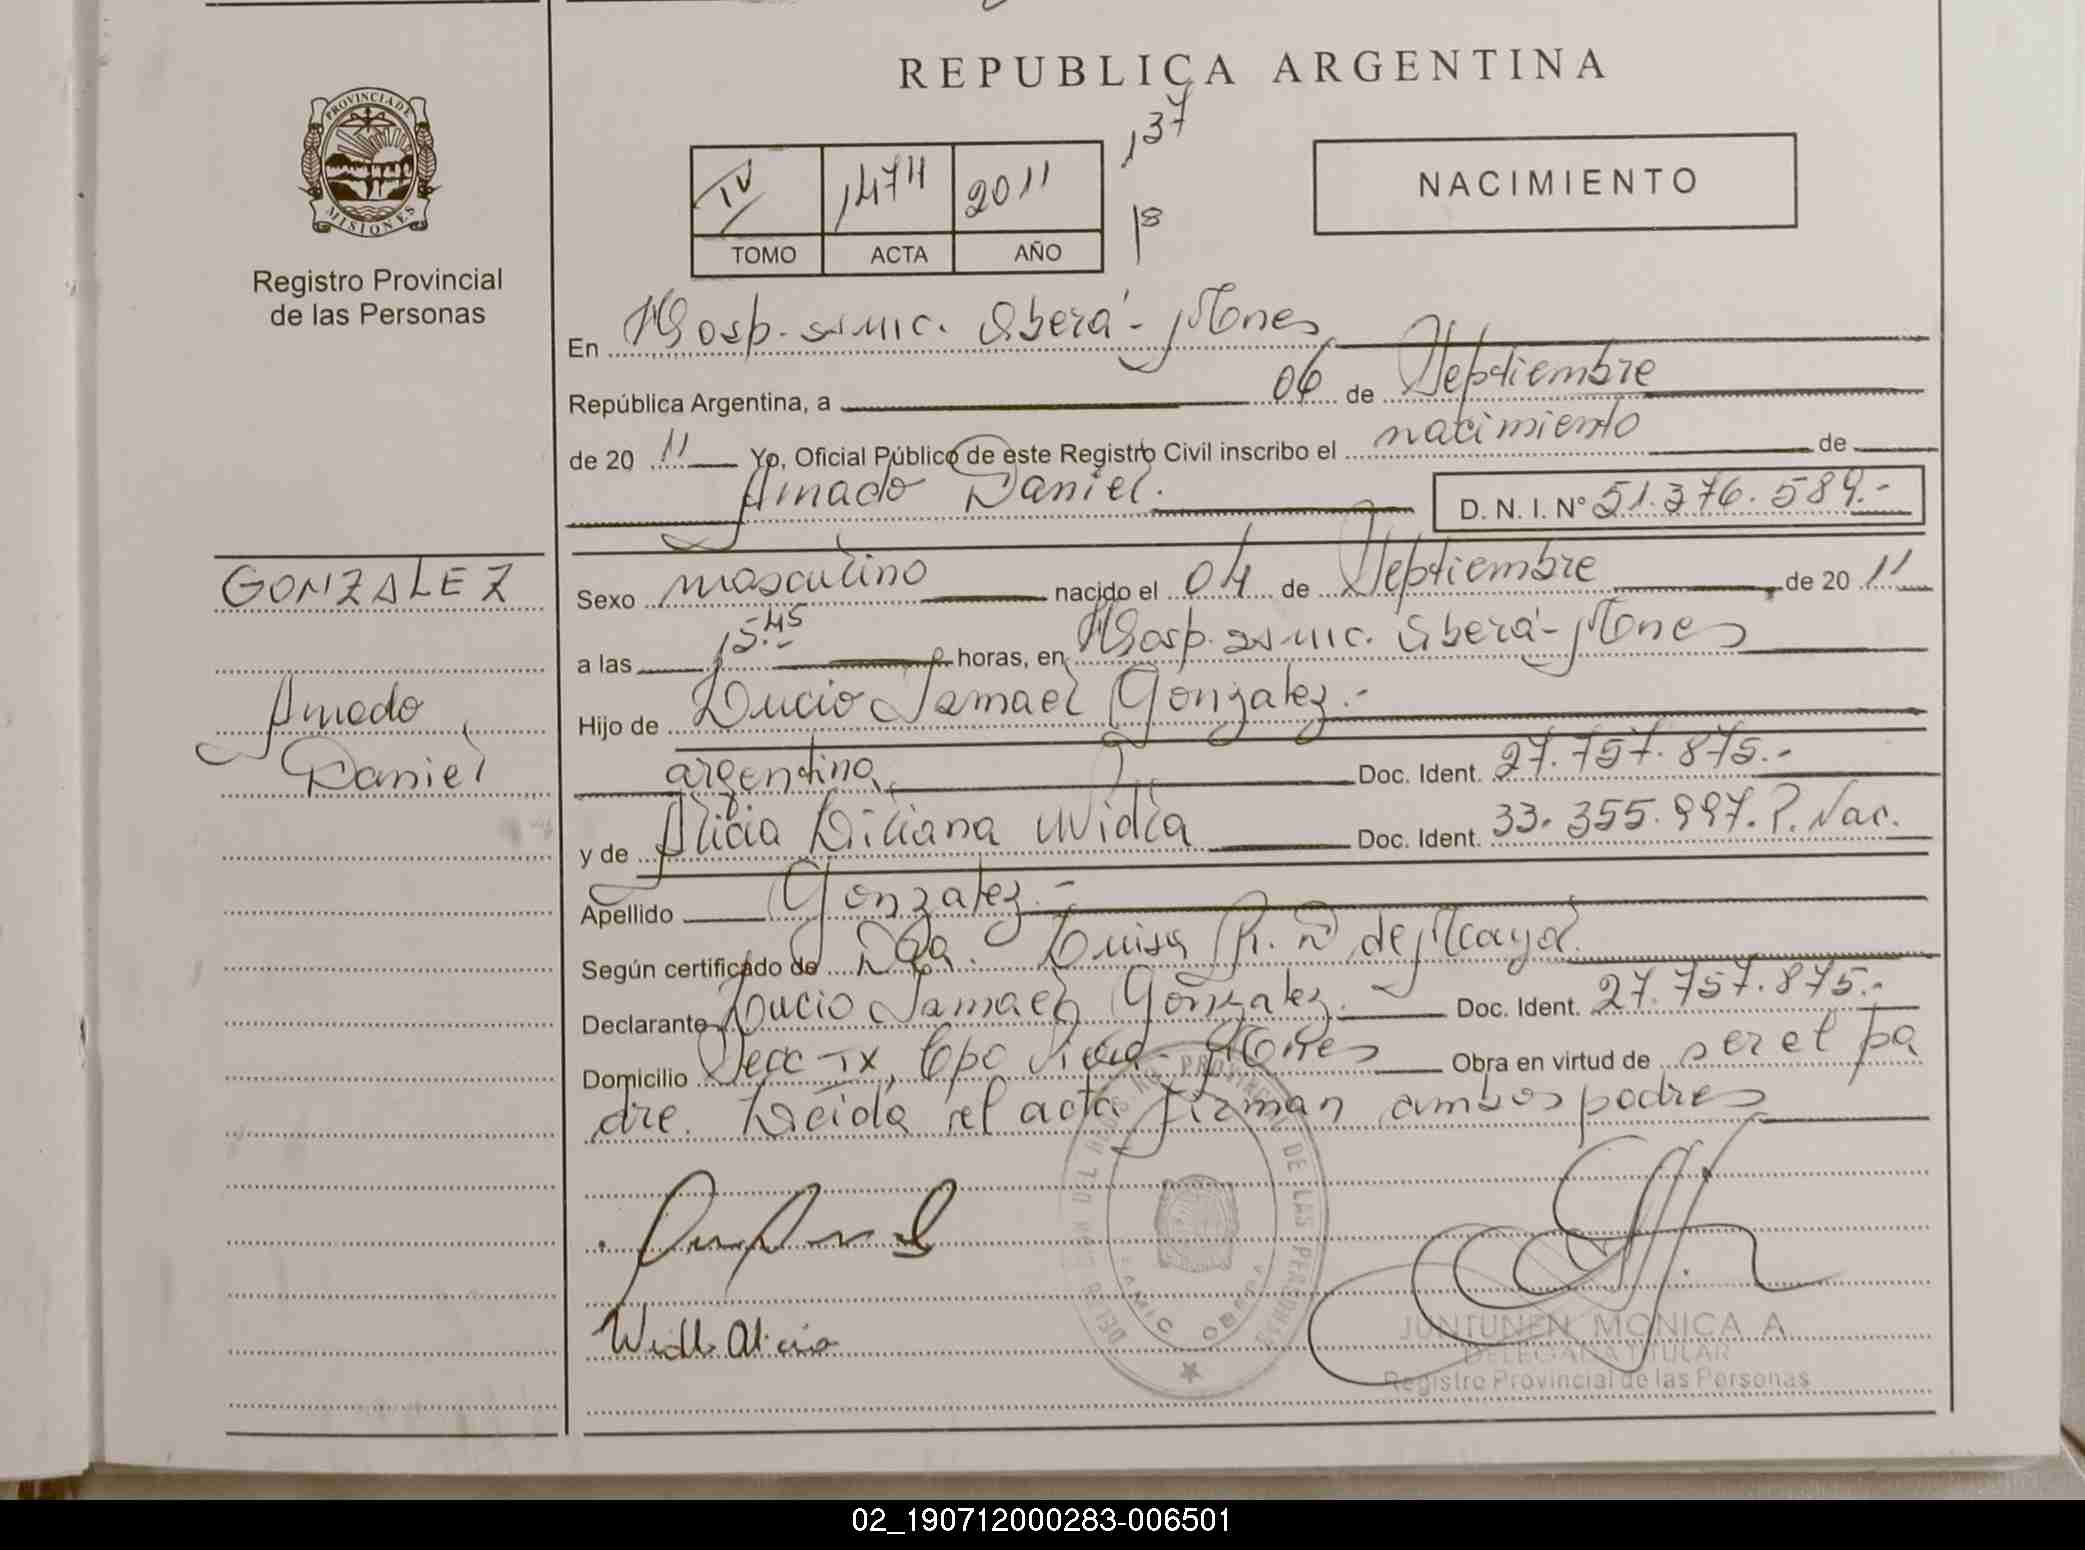 REPUBLICA ARGENTINA
PROVINCIA DE
MISIONES
Registro Provincial
de las Personas
IV 1474 2011 137
TOMO ACTA AÑO 18
NACIMIENTO
En Hosp. Oberá - Mnes
República Argentina, a 06 de Septiembre
de 20 11 Yo, Oficial Público de este Registro Civil inscribo el nacimiento de
Amado Daniel. D. N. I. Nº 51.376.589.-
GONZALEZ
Amado
Daniel
Sexo masculino nacido el 04 de Septiembre de 20 11
a las 15.45 horas, en Hosp. Oberá - Mnes
Hijo de Lucio Ismael Gonzalez.-
argentino Doc. Ident. 27.757.875.-
y de Alicia Liliana Widla Doc. Ident. 33.355.997. P. Nac.
Apellido Gonzalez.-
Según certificado de Dra. Luisa R. de
Declarante Lucio Ismael Gonzalez. Doc. Ident. 27.757.875.-
Domicilio Secc IX, Cpo Viera - Mnes Obra en virtud de ser el pa
dre. Leída el acta firman ambos padres
Widla Alicia
JUNTUNEN MONICA A
DELEGADA TITULAR
Registro Provincial de las Personas
02_190712000283-006501